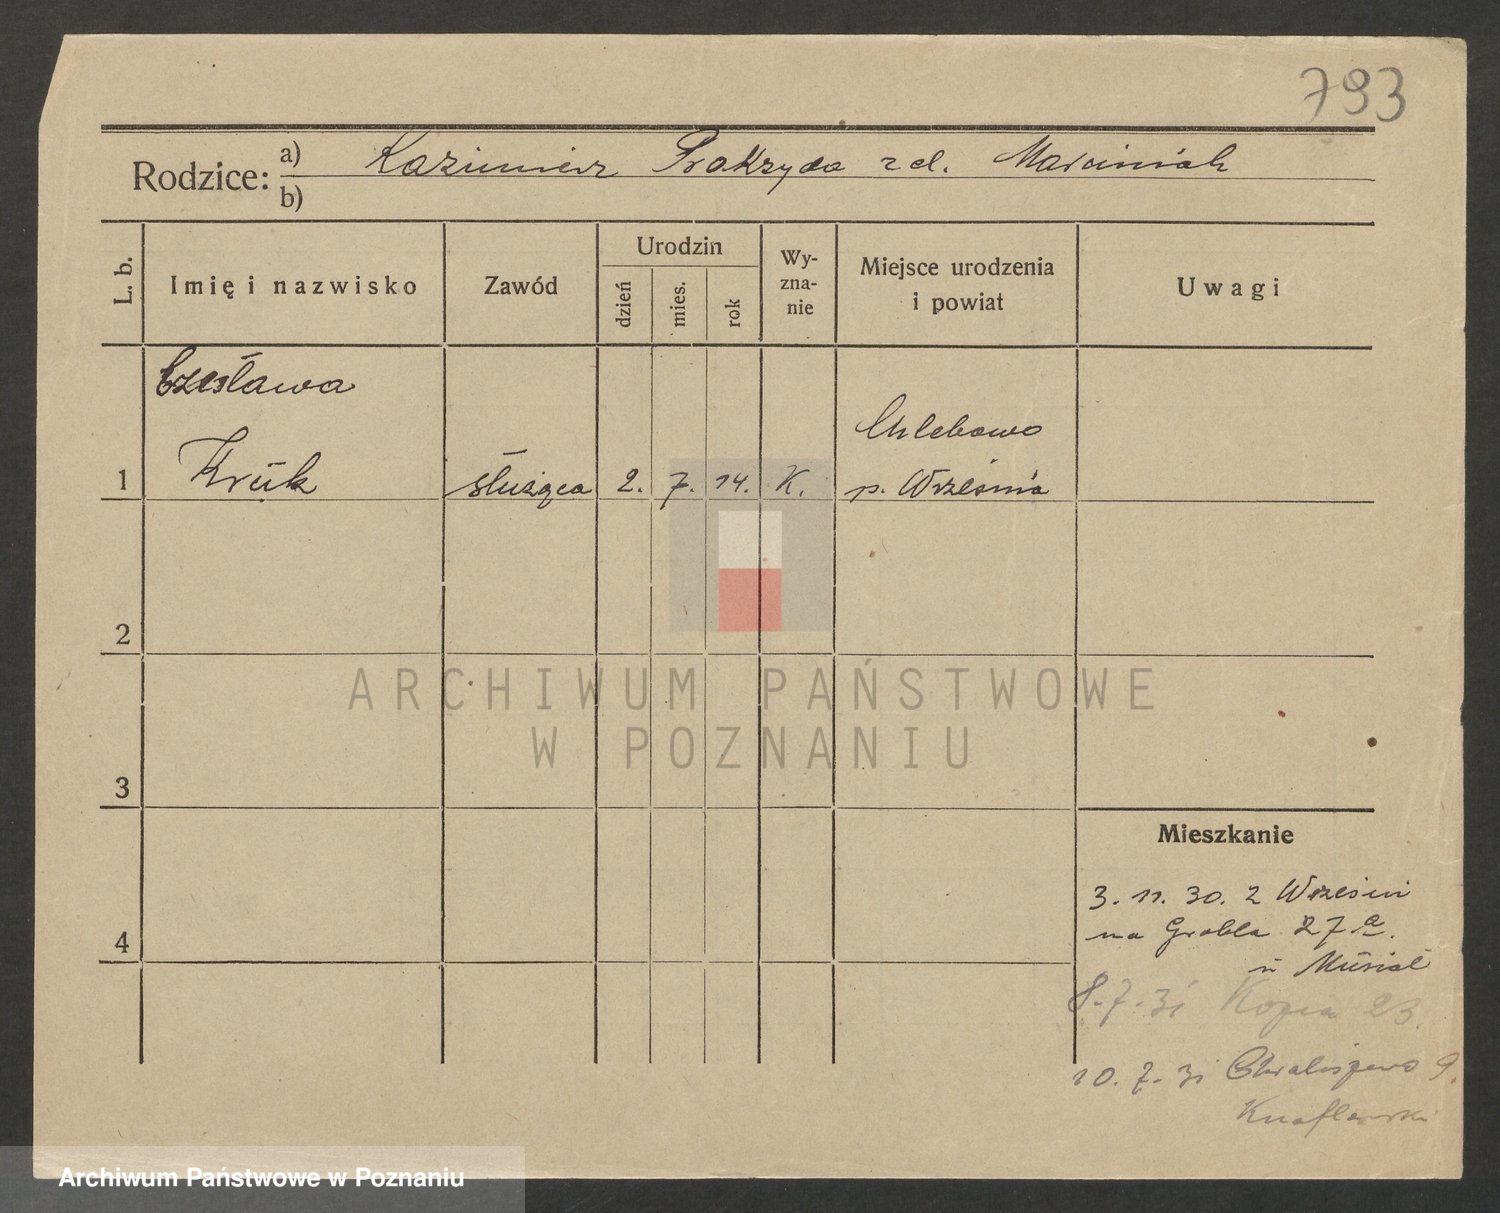 793
Rodzice: a) Kazimierz Prakzyda z d. Marciniak
b)
L. b.
Imię i nazwisko
Zawód
Urodzin
dzień
mies.
rok
Wy-
zna-
nie
Miejsce urodzenia
i powiat
Uwagi
Czesława
Chlebowo
1 Kruk służąca 2. 7. 14. K. p. Września
2
ARCHIWUM PAŃSTWOWE
W POZNANIU
3
Mieszkanie
3. 11. 30. z Wrześni
4
na Grobla 27a.
u Musiał
8.7.31 Kopia 23.
10.7.31 Chwaliszewo 9.
Knaflewski
Archiwum Państwowe w Poznaniu